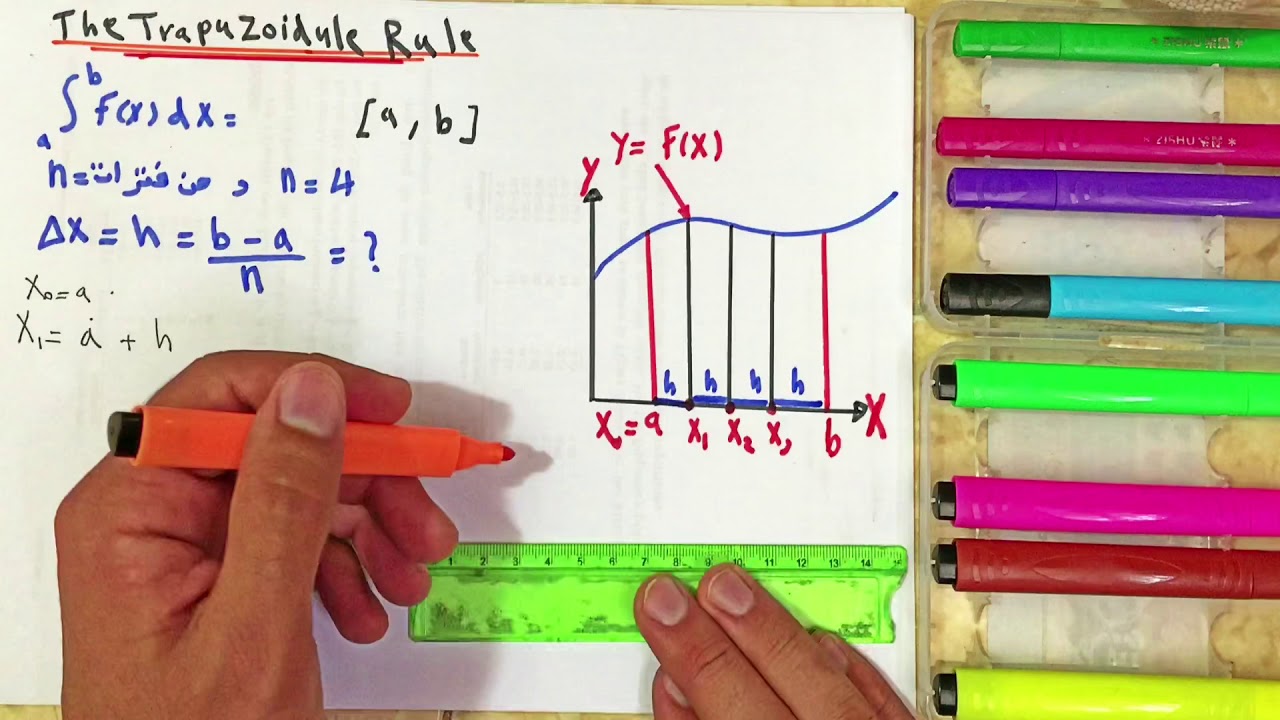 The Trapuzoidule Rule
∫ₐᵇ F(x) dx = [a, b]
n = من فترات و n = 4
Δx = h = (b - a)/n = ?
x₀ = a
x₁ = a + h
Y = F(X)
Y
h h h h
X₀ = a X₁ X₂ X₃ b X
ZISHU
1 2 3 4 5 6 7 8 9 10 11 12 13 14 15